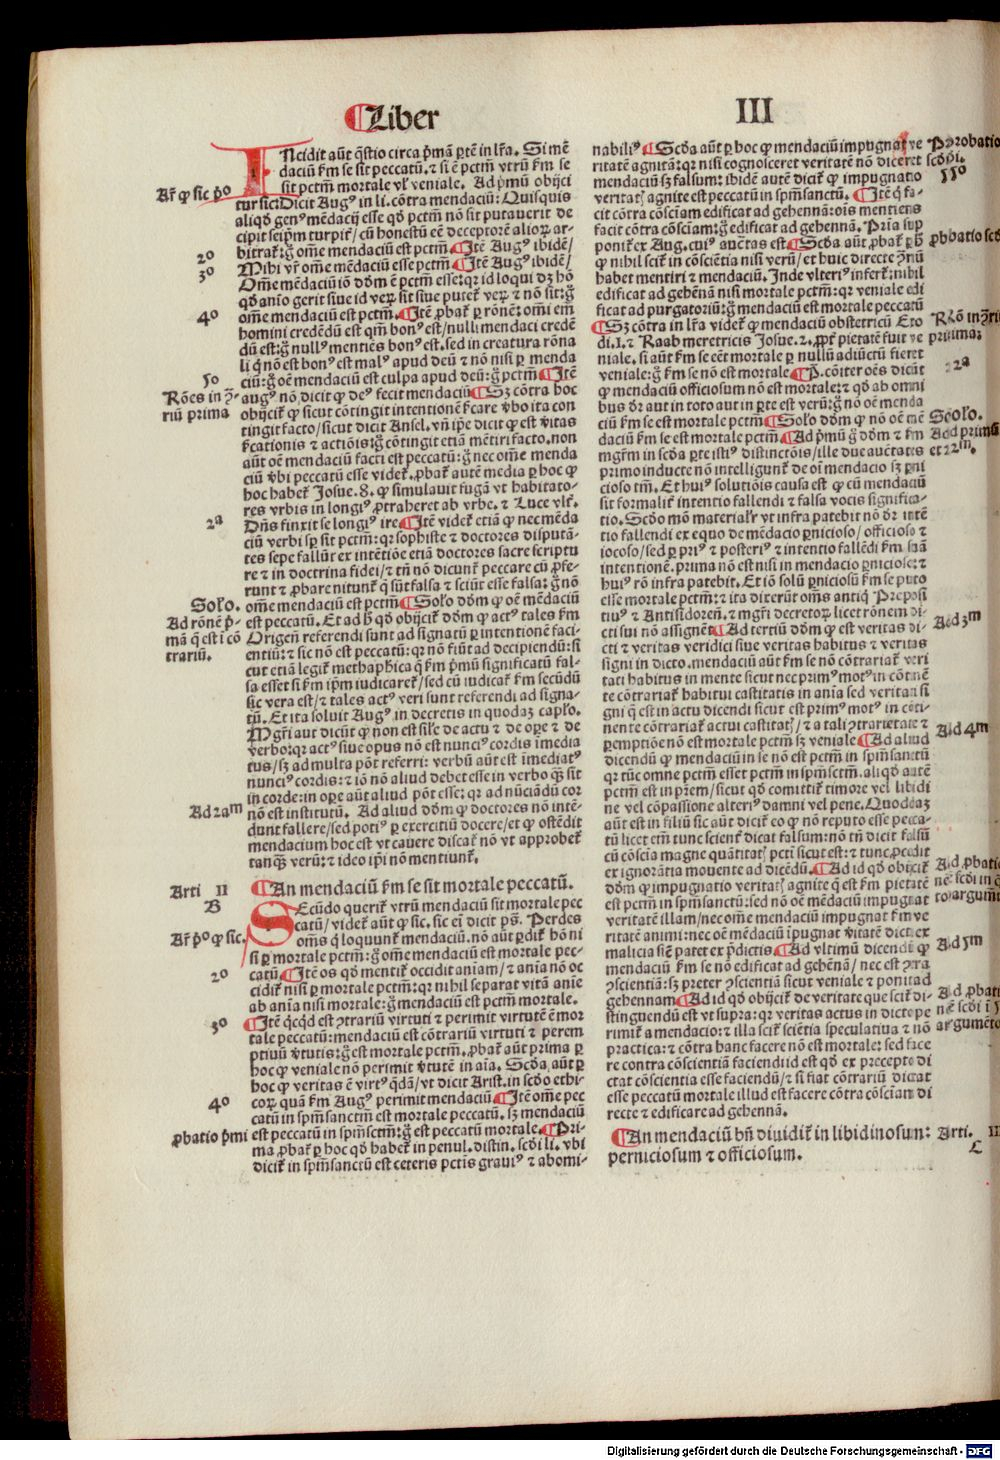 Liber
III
Ncidit aūt q̄stio circa p̄mā ꝑtē in lr̄a. Si mē
daciū ẜm se sit peccatū. ⁊ si ē pctm̄ vtrū ẜm se
sit pctm̄ mortale vl̓ veniale. Ad p̄mū obijci
Ar̄ ꝙ sic p̄o
tur sic: Dicit Augꝰ in li. cōtra mendaciū: Quisquis
aliqd̓ genꝰ mēdacij esse qd̓ pctm̄ nō sit putauerit de
cipit seip̄m turpit̓/ cū honestū eē deceptorē alioꝝ ar-
bitrat̓: g̊ ome mendaciū est pctm̄. ¶ Itē Augꝰ ibidē/
2o
Mihi vr̄ ome mēdaciū esse pctm̄ ¶ Itē Augꝰ ibidē/
3o
Ome mēdaciū iō dōm ē pctm̄ esse: qr id loqui dꝫ hō
qd̓ aīo gerit siue id veꝝ sit siue putet̓ veꝝ ⁊ nō sit: g̊
4o
ome mendaciū est pctm̄. ¶ Itē ꝓbat̓ ꝑ rōnē: omī em̄
homini credēdū est qm̄ bonꝰ est/ nulli mendaci credē
dū est: g̊ nullꝰ mentiēs bonꝰ est. sed in creatura rōna
li q̄ nō est bonꝰ est malꝰ apud deū ⁊ nō nisi ꝑ menda
5o
ciū: g̊ oē mendaciū est culpa apud deū: g̊ pctm̄ ¶ Itē
Rōes in ꝯ̄
augꝰ nō dicit ꝙ deꝰ fecit mendaciū ¶ Sꝫ cōtra hoc
riū prima
obijcit̓ ꝙ sicut cōtingit intentionē ẜcare v̓bo ita con
tingit facto/ sicut dicit Ansel. vn̄ ip̄e dicit ꝙ est v̓itas
ẜcationis ⁊ actiōis: g̊ cōtingit etiā mētiri facto. non
aūt oē mendaciū facti est peccatū: g̊ nec ome menda
ciū v̓bi peccatū esse videt̓. ꝓbat̓ autē media ꝑ hoc ꝙ
hoc habet̓ Josue. 8. ꝙ simulauit fugā vt habitato-
res vrbis in longiꝰ ꝓtraheret ab vrbe. ⁊ Luce vlt̓.
2a
Dn̄s finxit se longiꝰ ire ¶ Itē videt̓ etiā ꝙ nec mēda
ciū verbi sp̄ sit pctm̄: qr sophiste ⁊ doctores disputā-
tes sepe fallūt̓ ex intētiōe etiā doctores sacre scriptu
re ⁊ in doctrina fidei/ ⁊ tn̄ nō dicunt̓ peccare cū ꝓfe-
runt ⁊ ꝓbare nitunt̓ q̄ sūt falsa ⁊ sciūt esse falsa: g̊ nō
Solo.
ome mendaciū est pctm̄ ¶ Solo dōm ꝙ oē mendaciū
Ad rōnē p̄-
est peccatū. Et ad h̓ qd̓ obijcit̓ dōm ꝙ actꝰ tales ẜm
mā q̄ est ī cō
Origen̄ referendi sunt ad signatū ꝑ intentionē faci-
trariū.
entiū: ⁊ sic nō est peccatū: qr nō fiūt ad decipiendū: si
cut etiā legit̓ methaphica q̄ ẜm p̄mū significatū fal-
sa esset si ẜm ip̄m iudicaret̓/ sed cū iudicat̓ ẜm secūdū
sic vera est/ ⁊ tales actꝰ veri sunt referendi ad signa-
tū. Et ita soluit Augꝰ in decretis in quodaꝫ caplo.
Mgr̄i aut dicūt ꝙ non est sil̓e de actu ⁊ de oꝑe ⁊ de
verbo: qr actꝰ siue opus nō est nunciꝰ cordis imedia
tus/ sꝫ ad multa pōt referri: verbū aūt est imediatꝰ
nunciꝰ cordis: ⁊ iō nō aliud debet esse in verbo qꝫ sit
in corde: in oꝑe aūt aliud pōt esse: qr ad nūciādū cor
Ad 2am
nō est institutū. Ad aliud dōm ꝙ doctores nō intē-
dunt fallere/ sed potiꝰ ꝑ exercitiū docere/ et ꝙ ostēdit
mendacium hoc est vt cauere discat̓ nō vt approbet̓
tanqꝫ verū: ⁊ ideo ip̄i nō mentiunt̓.
Arti II
¶ An mendaciū ẜm se sit mortale peccatū.
B
SEcūdo querit̓ vtrū mendaciū sit mortale pec
catū/ videt̓ aūt ꝙ sic. sic ei̓ dicit pꝫ. Perdes
Ar̄ p̄o ꝙ sic.
oms q̄ loquunt̓ mendaciū. nō aūt ꝑdit̓ hō ni
si ꝑ mortale pctm̄: g̊ ome mendaciū est mortale pec-
2o
catū ¶ Itē os qd̓ mentit̓ occidit aniam/ ⁊ ania nō oc
cidit̓ nisi ꝑ mortale pctm̄: qr nihil separat vitā anie
ab ania nisi mortale: g̊ mendaciū est pctm̄ mortale.
3o
¶ Itē q̄cqd̓ est ꝯtrariū virtuti ⁊ perimit virtutē ē mor
tale peccatū: mendaciū est cōtrariū virtuti ⁊ perem
ptiuū v̓tutis: g̊ est mortale pctm̄. ꝓbat̓ aūt prima ꝑ
hoc ꝙ veniale nō perimit v̓tutē in aīa. Scd̓a aūt ꝑ
hoc ꝙ veritas ē virtꝰ q̄dā/ vt dicit Arist. in scd̓o ethi-
4o
coꝝ quā ẜm Augꝰ perimit mendaciū ¶ Itē ome pec
catū in spm̄sanctm̄ est mortale peccatū. sꝫ mendaciū
ꝓbatio p̄mi
est peccatū in spm̄sctm̄: g̊ est peccatū mortale. ¶ Pri-
ma ꝓbat̓ ꝑ hoc qd̓ habet̓ in penul. distin. scd̓i li. vbi
dicit̓ in spm̄sanctū est ceteris pctis grauiꝰ ⁊ abomi-
nabiliꝰ ¶ Scd̓a aūt ꝑ hoc ꝙ mendaciū impugnat ve
Probatio
ritatē agnitā: qr nisi cognosceret veritatē nō diceret
scd̓i.
mendaciū sꝫ falsum: ibidē autē dicit̓ ꝙ impugnatio
veritatꝭ agnite est peccatū in spm̄sanctū. ¶ Itē q̄ fa-
cit cōtra cōsciam edificat ad gehennā: ois mentiens
facit cōtra cōsciam: g̊ edificat ad gehennā. Pr̄ia sup
ponit̓ ex Aug. cuiꝰ auc̄tas est. ¶ Scd̓a aūt ꝓbat̓ ꝑ h̓
ꝓbatio scd̓
ꝙ nihil scit̓ in cōscientia nisi verū/ et huic directe ꝯ̄riū
habet mentiri ⁊ mendaciū. Inde vlteriꝰ infert̓: nihil
edificat ad gehēnā nisi mortale pctm̄: qr veniale edi
ficat ad purgatoriū: g̊ mendaciū est mortale peccatū
¶ Sꝫ cōtra in lr̄a videt̓ ꝙ mendaciū obstetricū Exo
Rō in ꝯ̄ri
di. 1. ⁊ Raab meretricis Josue. 2. ꝓpt̓ pietatē fuit ve
prima:
niale. si aūt ẜm se eēt mortale ꝑ nullū adiūctū fieret
veniale: g̊ ẜm se nō est mortale ¶ P̄. cōiter oēs dicūt
2a
ꝙ mendaciū officiosum nō est mortale: ⁊ qd̓ ab omni
bus dr̄ aut in toto aut in ꝑte est verū: g̊ nō oē menda
ciū ẜm se est mortale pctm̄ ¶ Solo dōm ꝙ nō oē mē
Solo.
daciū ẜm se est mortale pctm̄. ¶ Ad p̄mū g̊ dōm ⁊ ẜm
Ad primū
mgr̄m in scd̓a ꝑte istiꝰ distinctōis/ ille due auc̄tates
et 2m.
primo inducte nō intelligunt̓ de oī mendacio sꝫ ꝑni
cioso tm̄. Et huiꝰ solutiōis causa est ꝙ cū mendaciū
sit formalit̓ intentio fallendi ⁊ falsa vocis significa-
tio. Scd̓o mō materialr̄ vt infra patebit nō dr̄ intē
tio fallendi ex equo de mēdacio ꝑnicioso/ officioso ⁊
iocoso/ sed ꝑ priꝰ ⁊ posteriꝰ ⁊ intentio fallēdi ẜm suā
intentionē. prima nō est nisi in mendacio ꝑniciose: ⁊
huiꝰ rō infra patebit. Et iō solū ꝑniciosū ẜm se puto
esse mortale pctm̄: ⁊ ita dixerūt oms antiq̄ Preposi
tiuꝰ ⁊ Antisidoren̄. ⁊ mgr̄i decretoꝝ licet rōnem di-
cti sui nō assignēt ¶ Ad tertiū dōm ꝙ est veritas di-
Ad 3m
cti ⁊ veritas veridici siue veritas habitus ⁊ veritas
signi in dicto. mendaciū aūt ẜm se nō cōtrariat̓ veri
tati habitus in mente sicut nec primꝰ motꝰ in cōtinē
te cōtrariat̓ habitui castitatis in ania sed veritati si
gni q̄ est in actu dicendi sicut est primꝰ motꝰ in cōti-
nente cōtrariat̓ actui castitatꝭ/ ⁊ a tali ꝯtrarietate ⁊
ꝑemptiōe nō est mortale pctm̄ sꝫ veniale ¶ Ad aliud
Ad 4m
dicendū ꝙ mendaciū in se nō est pctm̄ in spm̄sanctū
qr tūc omne pctm̄ esset pctm̄ in spm̄sctm̄. aliqd̓ autē
pctm̄ est in pr̄em/ sicut qd̓ comittit̓ timore vel libidi
ne vel cōpassione alteriꝰ damni vel pene. Quoddaꝫ
aūt est in filiū sic aut dicit̓ eo ꝙ nō reputo esse pecca-
tū licet etm̄ tunc scient̓ dicat falsum: nō tn̄ dicit falsū
cū cōscia magne quātitatꝭ pcti sicut est: ⁊ tunc ꝓcedit
ex ignorātia mouente ad dicēdū. ¶ Ad id qd̓ obijcit̓
Ad ꝓbatio
dōm ꝙ impugnatio veritatꝭ agnite q̄ est ẜm pietatē
nē scd̓i in q̄
est pctm̄ in spm̄sanctū: sed nō oē mēdaciū impugnat
to argumē
veritatē illam/ nec ome mendaciū impugnat ẜm ve
ritatē animi: nec oē mēdaciū īpugnat v̓itatē dict̓ ex
malicia siē patet ex p̄dictis ¶ Ad vltimū dicendū ꝙ
Ad 5m
mendaciū ẜm se nō edificat ad gehēnā/ nec est ꝯtra
ꝯscientiā: sꝫ preter ꝯscientiā sicut veniale ⁊ ponit ad
gehennam ¶ Ad id qd̓ obijcit̓ de veritate que scit̓ di-
Ad ꝓbati
stinguendū est vt supra: qr veritas actus in dicto pe
nē scd̓i ī 5
rimit̓ a mendacio: ⁊ illa scit̓ sciētia speculatiua ⁊ nō
argumēto
practica: ⁊ cōtra hanc facere nō est mortale: sed face
re contra cōscientiā faciendi id est qd̓ ex precepto di
ctat cōscientia esse faciendū/ ⁊ si fiat cōtrariū dictat
esse peccatū mortale illud est facere cōtra cōsciam di
recte ⁊ edificare ad gehennā.
¶ An mendaciū bn̄ diuidit̓ in libidinosum:
Arti. II
perniciosum ⁊ officiosum.
C
Digitalisierung gefördert durch die Deutsche Forschungsgemeinschaft - DFG